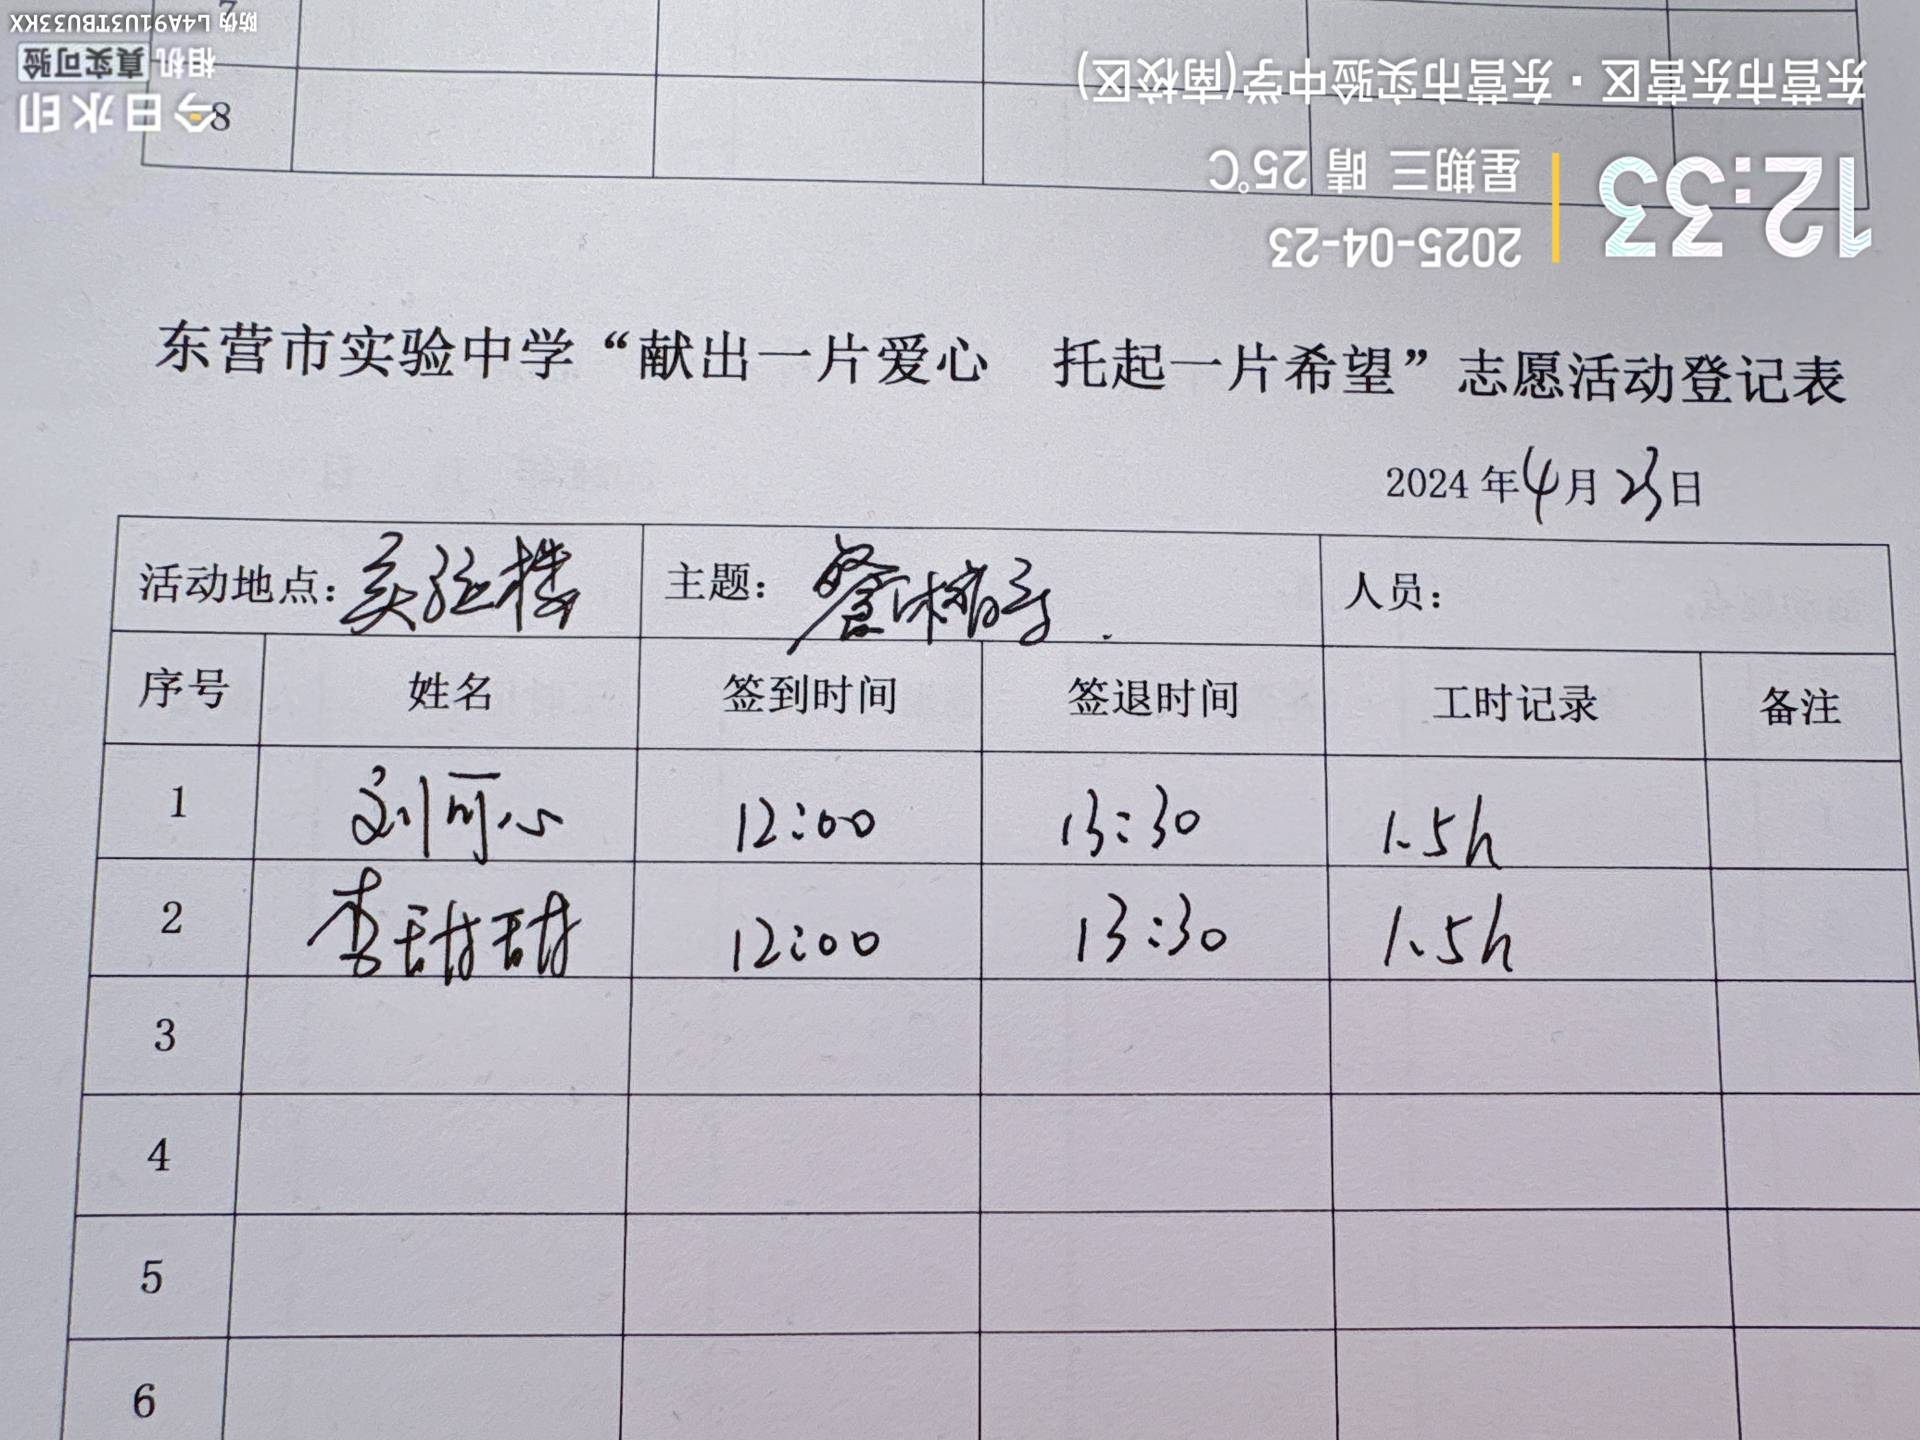 7
8
防伪 L4A91U3TBU33KX
相机 真实可验
今日水印
东营市东营区·东营市实验中学(南校区)
12:33
2025-04-23
星期三 晴 25℃
东营市实验中学“献出一片爱心 托起一片希望”志愿活动登记表
2024年4月23日
活动地点:实验楼 主题: 人员:
序号 姓名 签到时间 签退时间 工时记录 备注
1 刘可心 12:00 13:30 1.5h
2 李甜甜 12:00 13:30 1.5h
3
4
5
6